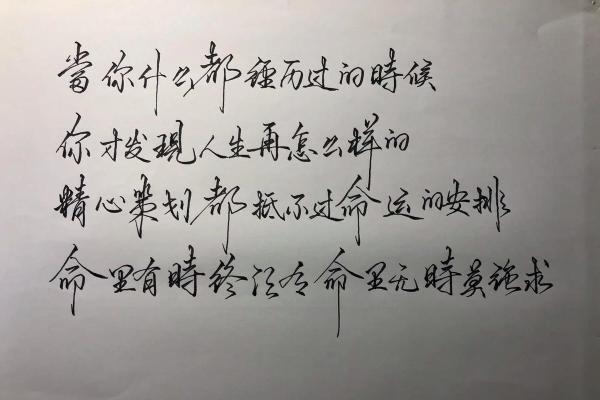 當你什么都經历过的時候
你才发現人生再怎么样的
精心策划都抵不过命运的安排
命里有時终须有命里无時莫强求